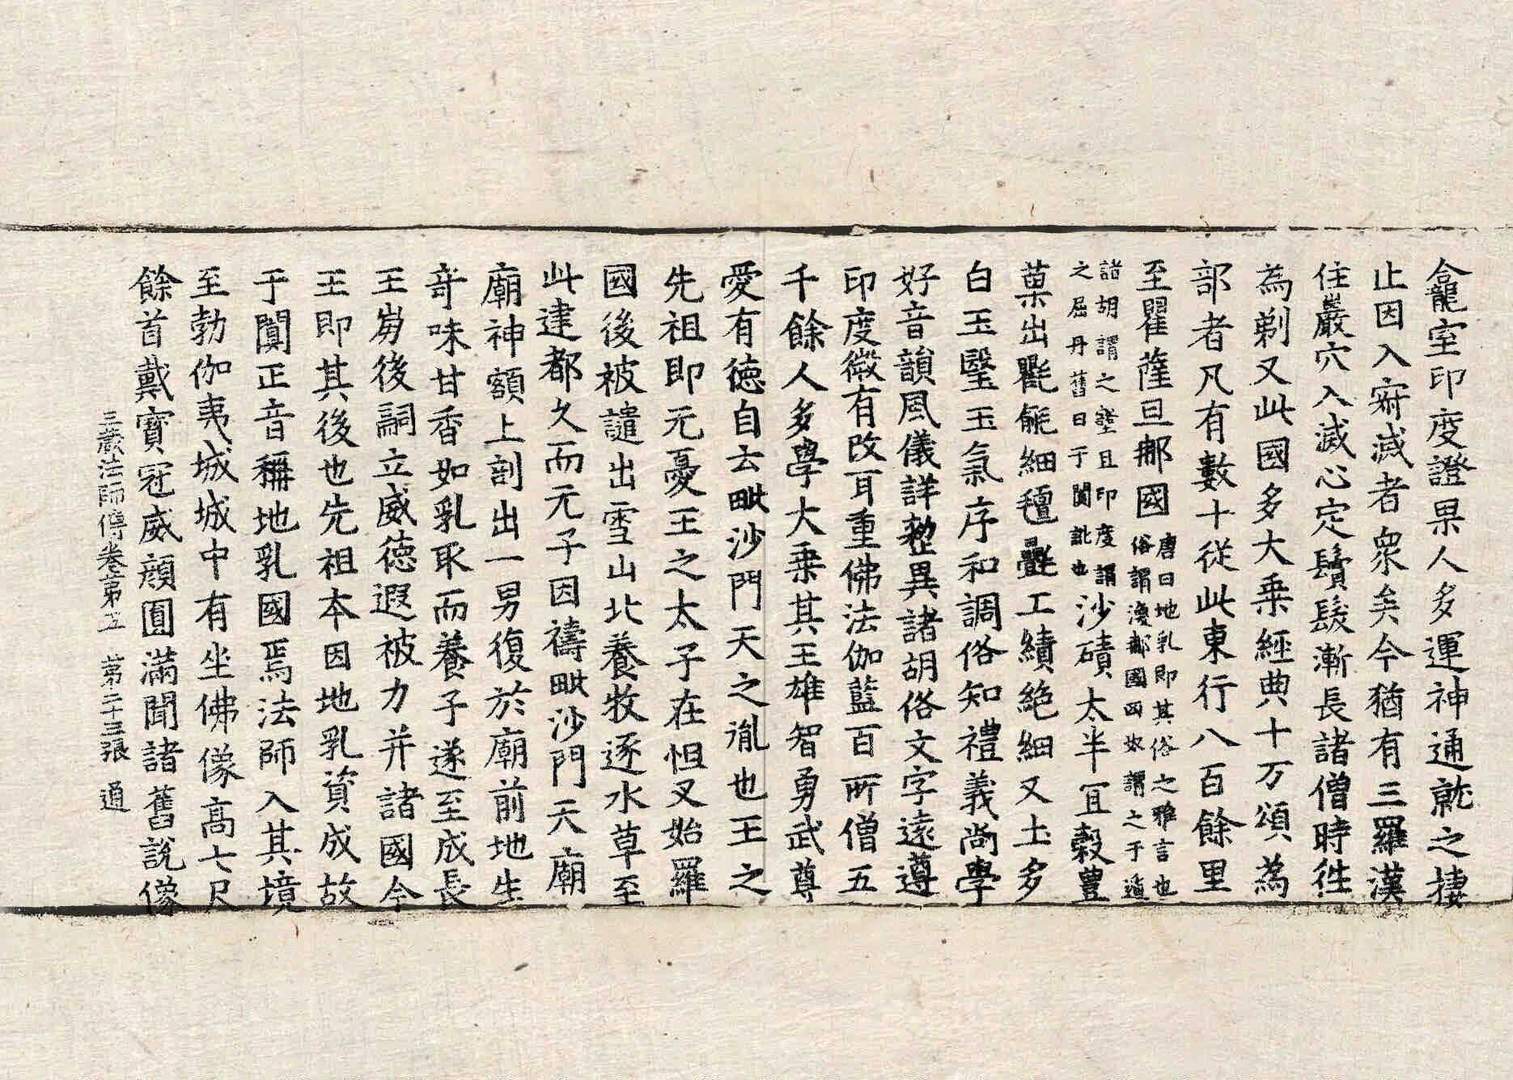 龕室印度證果人多運神通就之棲
止因入寂滅者衆矣今猶有三羅漢
住巖穴入滅心定鬚髮漸長諸僧時往
為剃又此國多大乘經典十万頌為
部者凡有數十從此東行八百餘里
至瞿薩旦那國唐曰地乳即其俗之雅言也
俗謂渙那國匈奴謂之于遁
諸胡謂之壑旦印度謂
之屈丹舊曰于闐訛也沙磧太半宜穀豊
菓出氍毹細氊㲲工績絶細又土多
白玉瑿玉氣序和調俗知禮義尚學
好音韻風儀詳整異諸胡俗文字遠遵
印度微有改耳重佛法伽藍百所僧五
千餘人多學大乗其王雄智勇武尊
愛有徳自云毗沙門天之胤也王之
先祖即无憂王之太子在怛叉始羅
國後被譴出雪山北養牧逐水草至
此建都久而无子因禱毗沙門天廟
廟神額上剖出一男復於廟前地生
奇味甘香如乳取而養子遂至成長
王崩後詞立威徳遐被力并諸國今
王即其後也先祖本因地乳資成故
于闐正音稱地乳國焉法師入其境
至勃伽夷城城中有坐佛像高七尺
餘首戴寶冠威顔圓滿聞諸舊說像
三藏法師傳卷第五 第二十三張 通